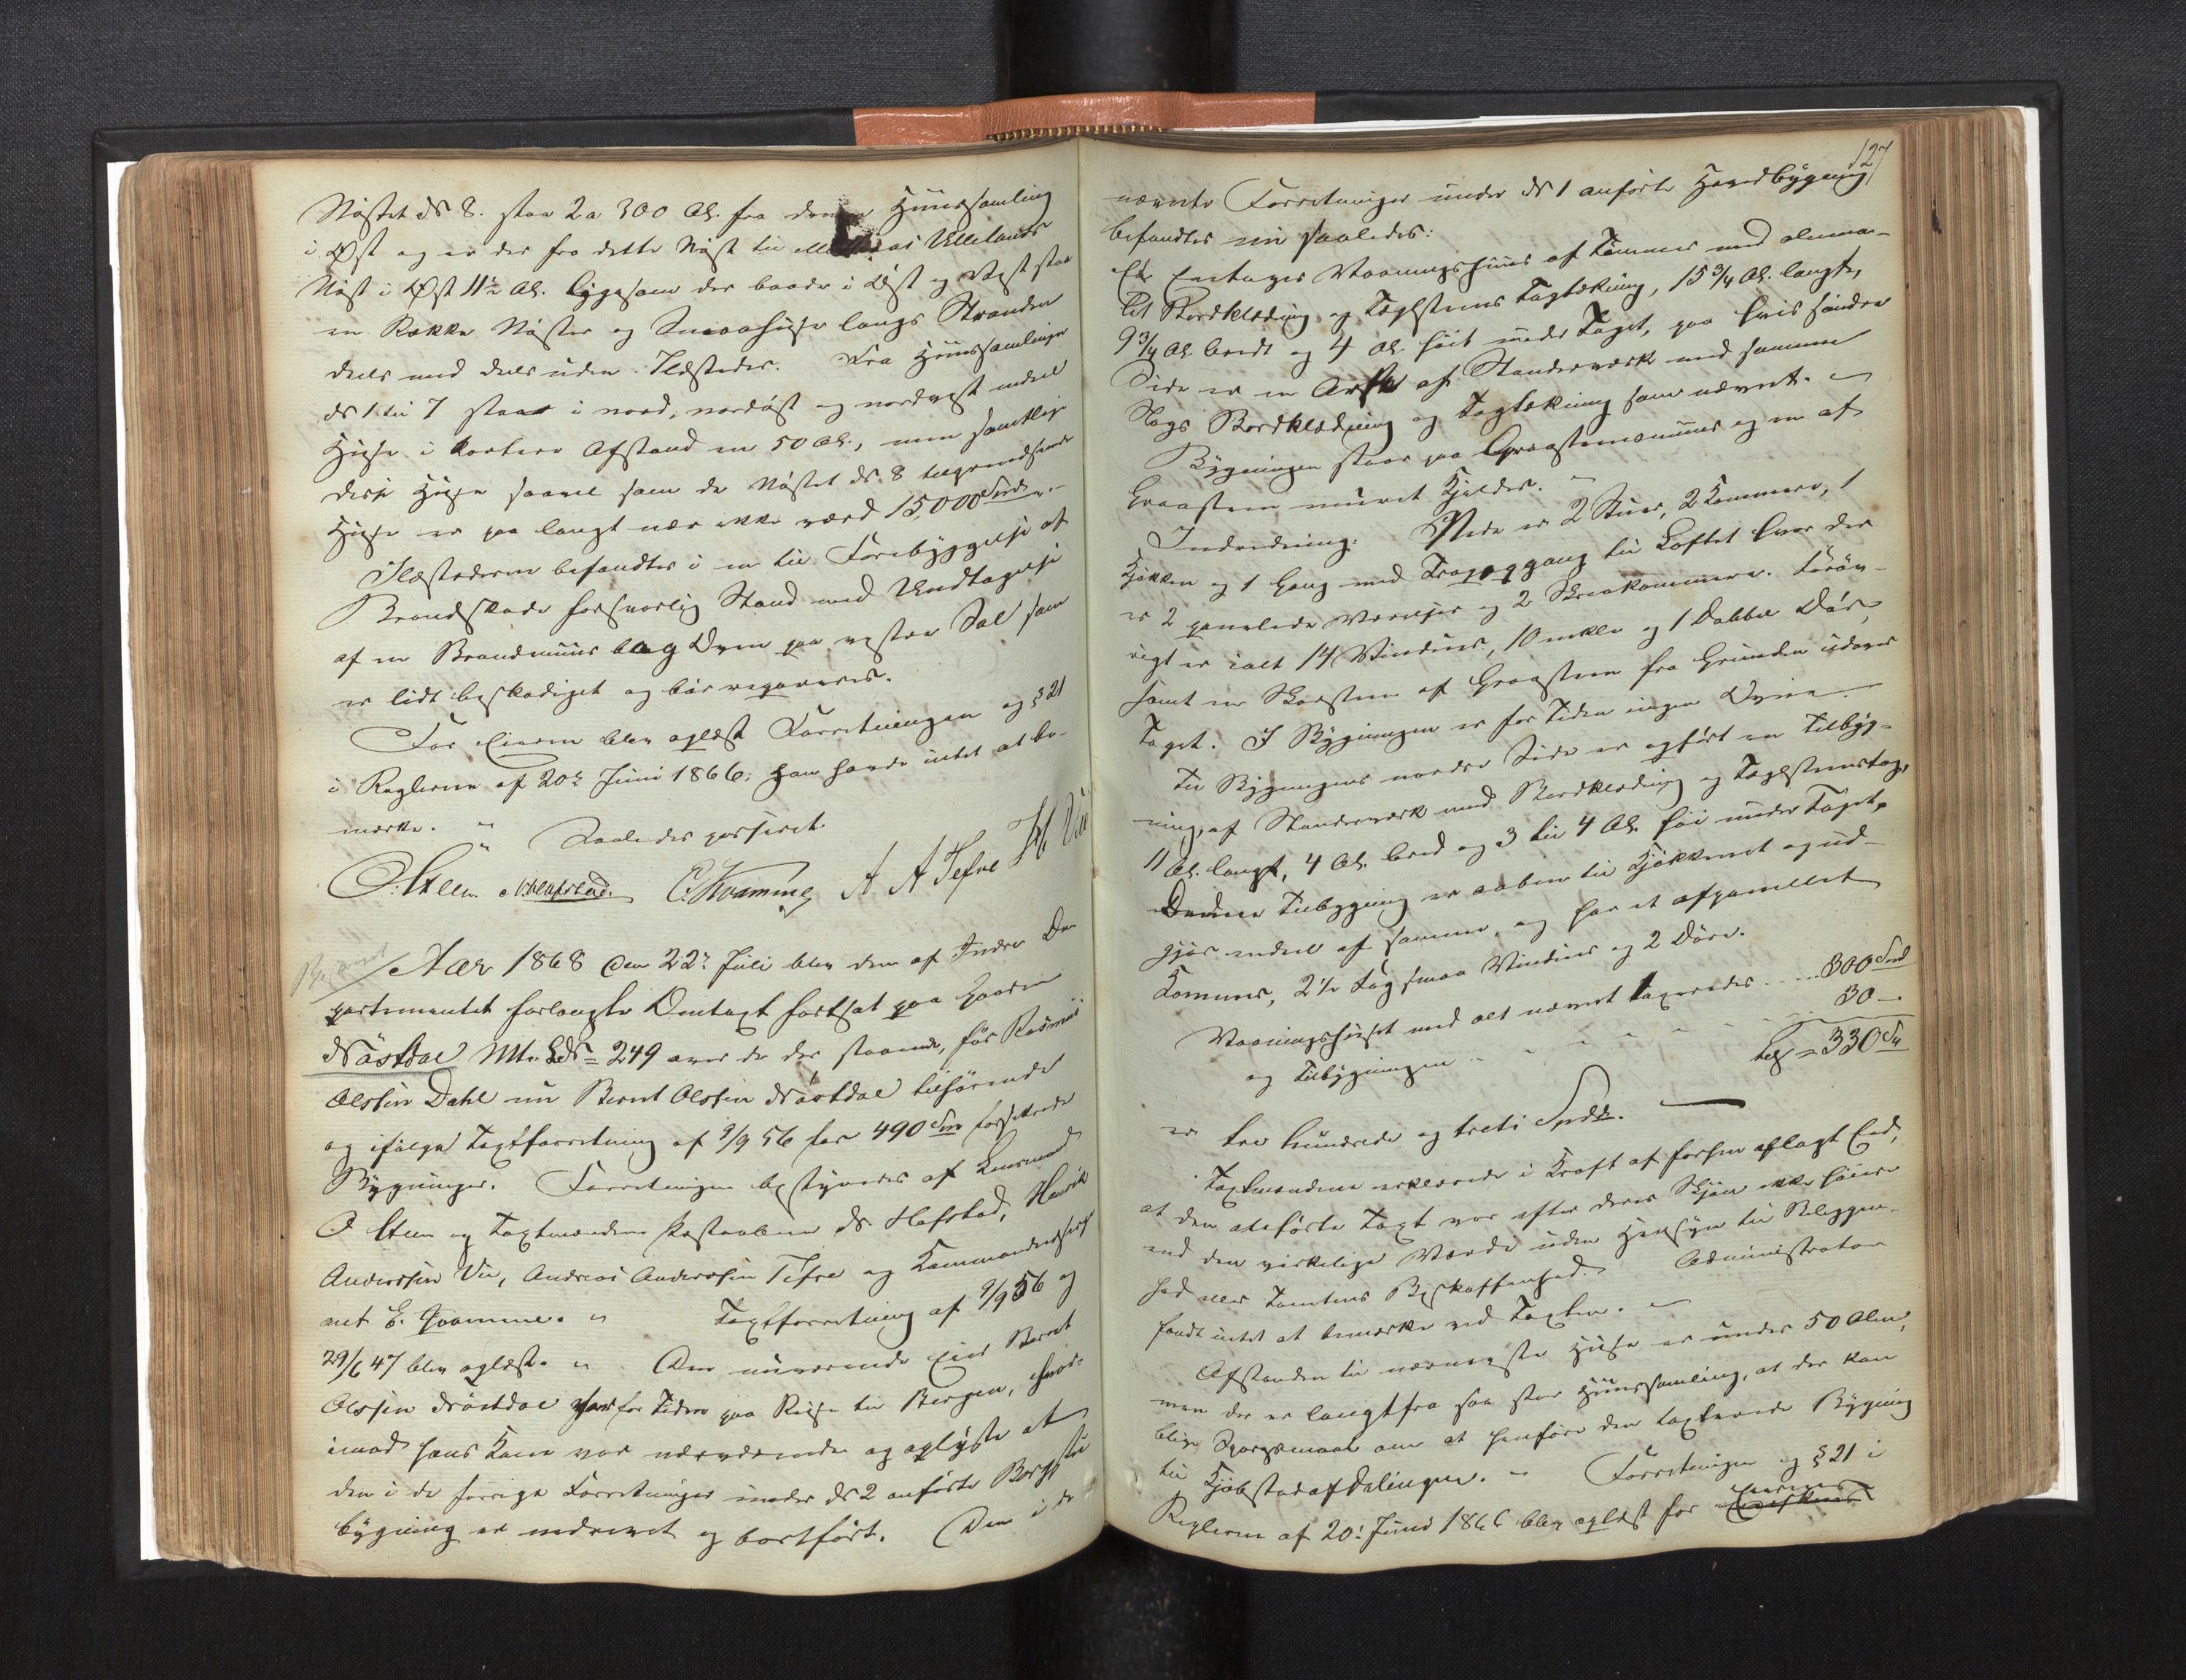 Nøstet No 8. staa 2 a 300 Al. fra denne Huussamling
i Øst og er der fra dette Nøst til Ullelands
Nøst i Øst 11½ Al. ligesom der baade i Øst og Vest staa
en Række Nøster og Smaahuse langs Stranden
deels med deels uden Ildsteder. Fra Huussamlingen
No 1 til 7 staar i nord, nordøst og nordvest endeel
Huse i kortere Afstand en 50 Al., men samtlige
disse Huse saavel som de Nøstet No 8 begrændsende
Huse er paa langt nær ikke værd 15,000 Spd. -
Ildstederne befandtes i en til Forebyggelse af
Brandskade forsvarlig Stand med Undtagelse
af en Brandmuur bag Ovnen paa vestre Sal som
er lidt beskadiget og bør repareres.
For Eieren blev oplæst Forretningen og § 21
i Reglerne af 20de Juni 1866; han havde intet at be-
mærke. " Saaledes passeret.
O. Steen N. Hafstad E. Kvamme A A Tefre H A Vie
Aar 1868 den 22de Juli blev den af Indre De-
partementet forlangte Omtaxt fortsat paa Gaarden
Nøstdal Mt. L No 249 over de der staaende, før Rasmus
Olssen Dahl nu Bernt Olssen Nøstdal tilhørende
og ifølge Taxtforretning af 9/9 56 for 490 Spd forsikrede
Bygninger. Forretningen bestyredes af Lensmand
O Steen og Taxtmændene N. Hafstad, Henrik
Anderssen Vie, Andreas Anderssen Tefre og
E. Qvamme. " Taxtforretning af 9/9 56 og
29/6 47 blev oplæst. " Den nuværende Eier Bernt
Olssen Nøstdal var for Tiden paa Reise til Bergen, hvor-
imod hans Kone var nærværende og oplyste at
den i de forrige Forretninger under No 2 anførte
bygning er nedrevet og bortført. Den i de
127
nævnte Forretninger under No 1 anførte Hovedbygning
befandtes nu saaledes:
Et Eenetages Vaaningshuus af Tømmer med almin-
Bordklædning og Taglsteens Tagtækning, 15¾ Al. langt,
9¾ Al. bredt og 4 Al. høit under Taget, paa hvis søndre
Side er en Ark af Standerværk med samme
Slags Bordklædning og Tagtækning som nævnt. -
Bygningen staar paa Graasteensmuur og en af
Graasteen muret Kjelder. -
Indredning: Nede er 2 Stuer, 2 Kammere, 1
Kjøkken og 1 Gang med Trapegang til Loftet hvor der
er 2 panelede Værelser og 2 Skraakammere. Forøv-
rigt er ialt 14 Vinduer, 10 enkle og 1 Dobbel Dør,
samt en Skorsteen af Graasteen fra Grunden udover
Taget. I Bygningen er for Tiden ingen Ovne. -
Til Bygningens nordre Side er opført en Tilbyg-
ning, af Standerværk med Bordklædning og Taglsteenstag,
11 Al. langt, 4 Al. bred og 3 til 4 Al. høi under Taget.
Denne Tilbygning er aaben til Kjøkkenet og ud-
gjør endeel af samme, og har et afpanellet
Kammer, 2½ Fag smaa Vinduer og 2 Døre.
Vaaningshuset med alt nævnt taxeredes .... 300 Spd
og Tilbygningen " " " " " 30 -
tils = 330 Spd
er tre hundrede og treti Spdlr. -
Taxtmændene erklærede i Kraft af forhen aflagt Eed,
at den ansførte Taxt var efter deres Skjøn ikke høiere
end den virkelige Værdi uden Hensyn til Beliggen-
hed eller Tomtens Beskaffenhed. Administrator
fandt intet at bemærke ved Taxten. -
Afstanden til nærmeste Huse er under 50 Alen,
men der er langtfra saa stor Huussamling, at der kan
blive Spørgsmaal om at henføre den taxerede Bygning
til Kjøbstadafdelingen. - Forretningen og § 21 i
Reglerne af 20de Juni 1866 blev oplæst for Eierens